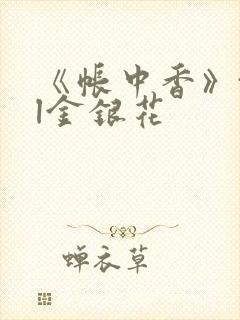 《帐中香》
|金银花
蝉衣草